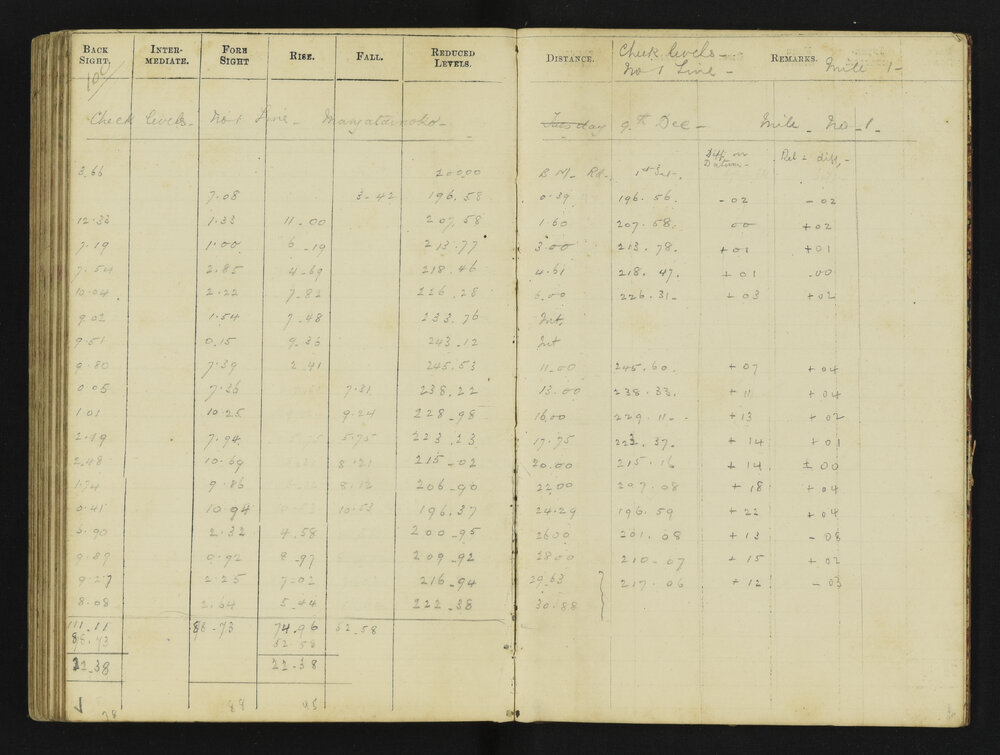 BACK SIGHT. INTER-MEDIATE. FORE SIGHT RISE. FALL. REDUCED LEVELS.
100
Check levels - No 1 Line -
3.66 200.00
7.08 3-42 196.58
12.33 1.33 11-00 207.58
7.19 1.00 6-19 213.77
7.54 2.85 4-69 218.46
10.04 2.22 7-82 226.28
9.02 1.54 7-48 233.76
9.51 0.15 9-36 243-12
9.80 7.39 2-41 245.53
0.05 7.36 238.22
1.01 10.25 9-24 228-98
2.19 7.94 5.75 223.23
2.48 10.69 215-02
1.74 9.86 8.12 206-90
0.41 10.94 10.53 196.37
6.90 2.32 4.58 200-95
9.89 0.92 8-97 209-92
9.27 2.25 7-02 216-94
8.08 2.64 5-44 222-38
111.11 88-73 74.96 52-58
88.73 52-58
22.38 22-38
DISTANCE. Check levels - REMARKS. Mile 1-
No 1 Line -
Tuesday 9th Dec - Mile No-1-
Diff on Datum - Rel = diff -
B.M. Rd.
0.39 196.56. -02 -02
1.60 207.58. 00 +02
3.00 213.78. +01 +01
4.61 218.47. +01 .00
6.00 226.31- +03 +02
Int.
Int
11.00 245.60. +07 +04
13.00 238.33. +11 +04
16.00 229.11- +13 +02
17.75 223.37- +14 +01
20.00 215.16 +14 ±00
22.00 207.08 +18 +04
24.29 196.59 +22 +04
26.00 201.08 +13 -08
28.00 210-07 +15 +02
29.63 217.06 +12 -03
30.88